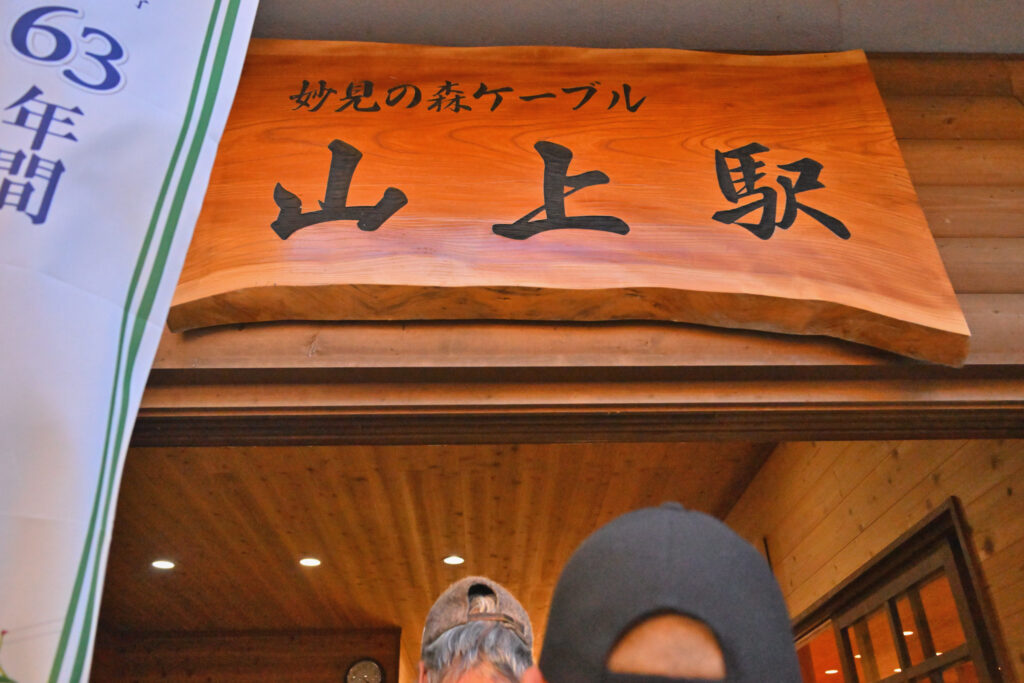 妙見の森ケーブル
山上駅
63
年間